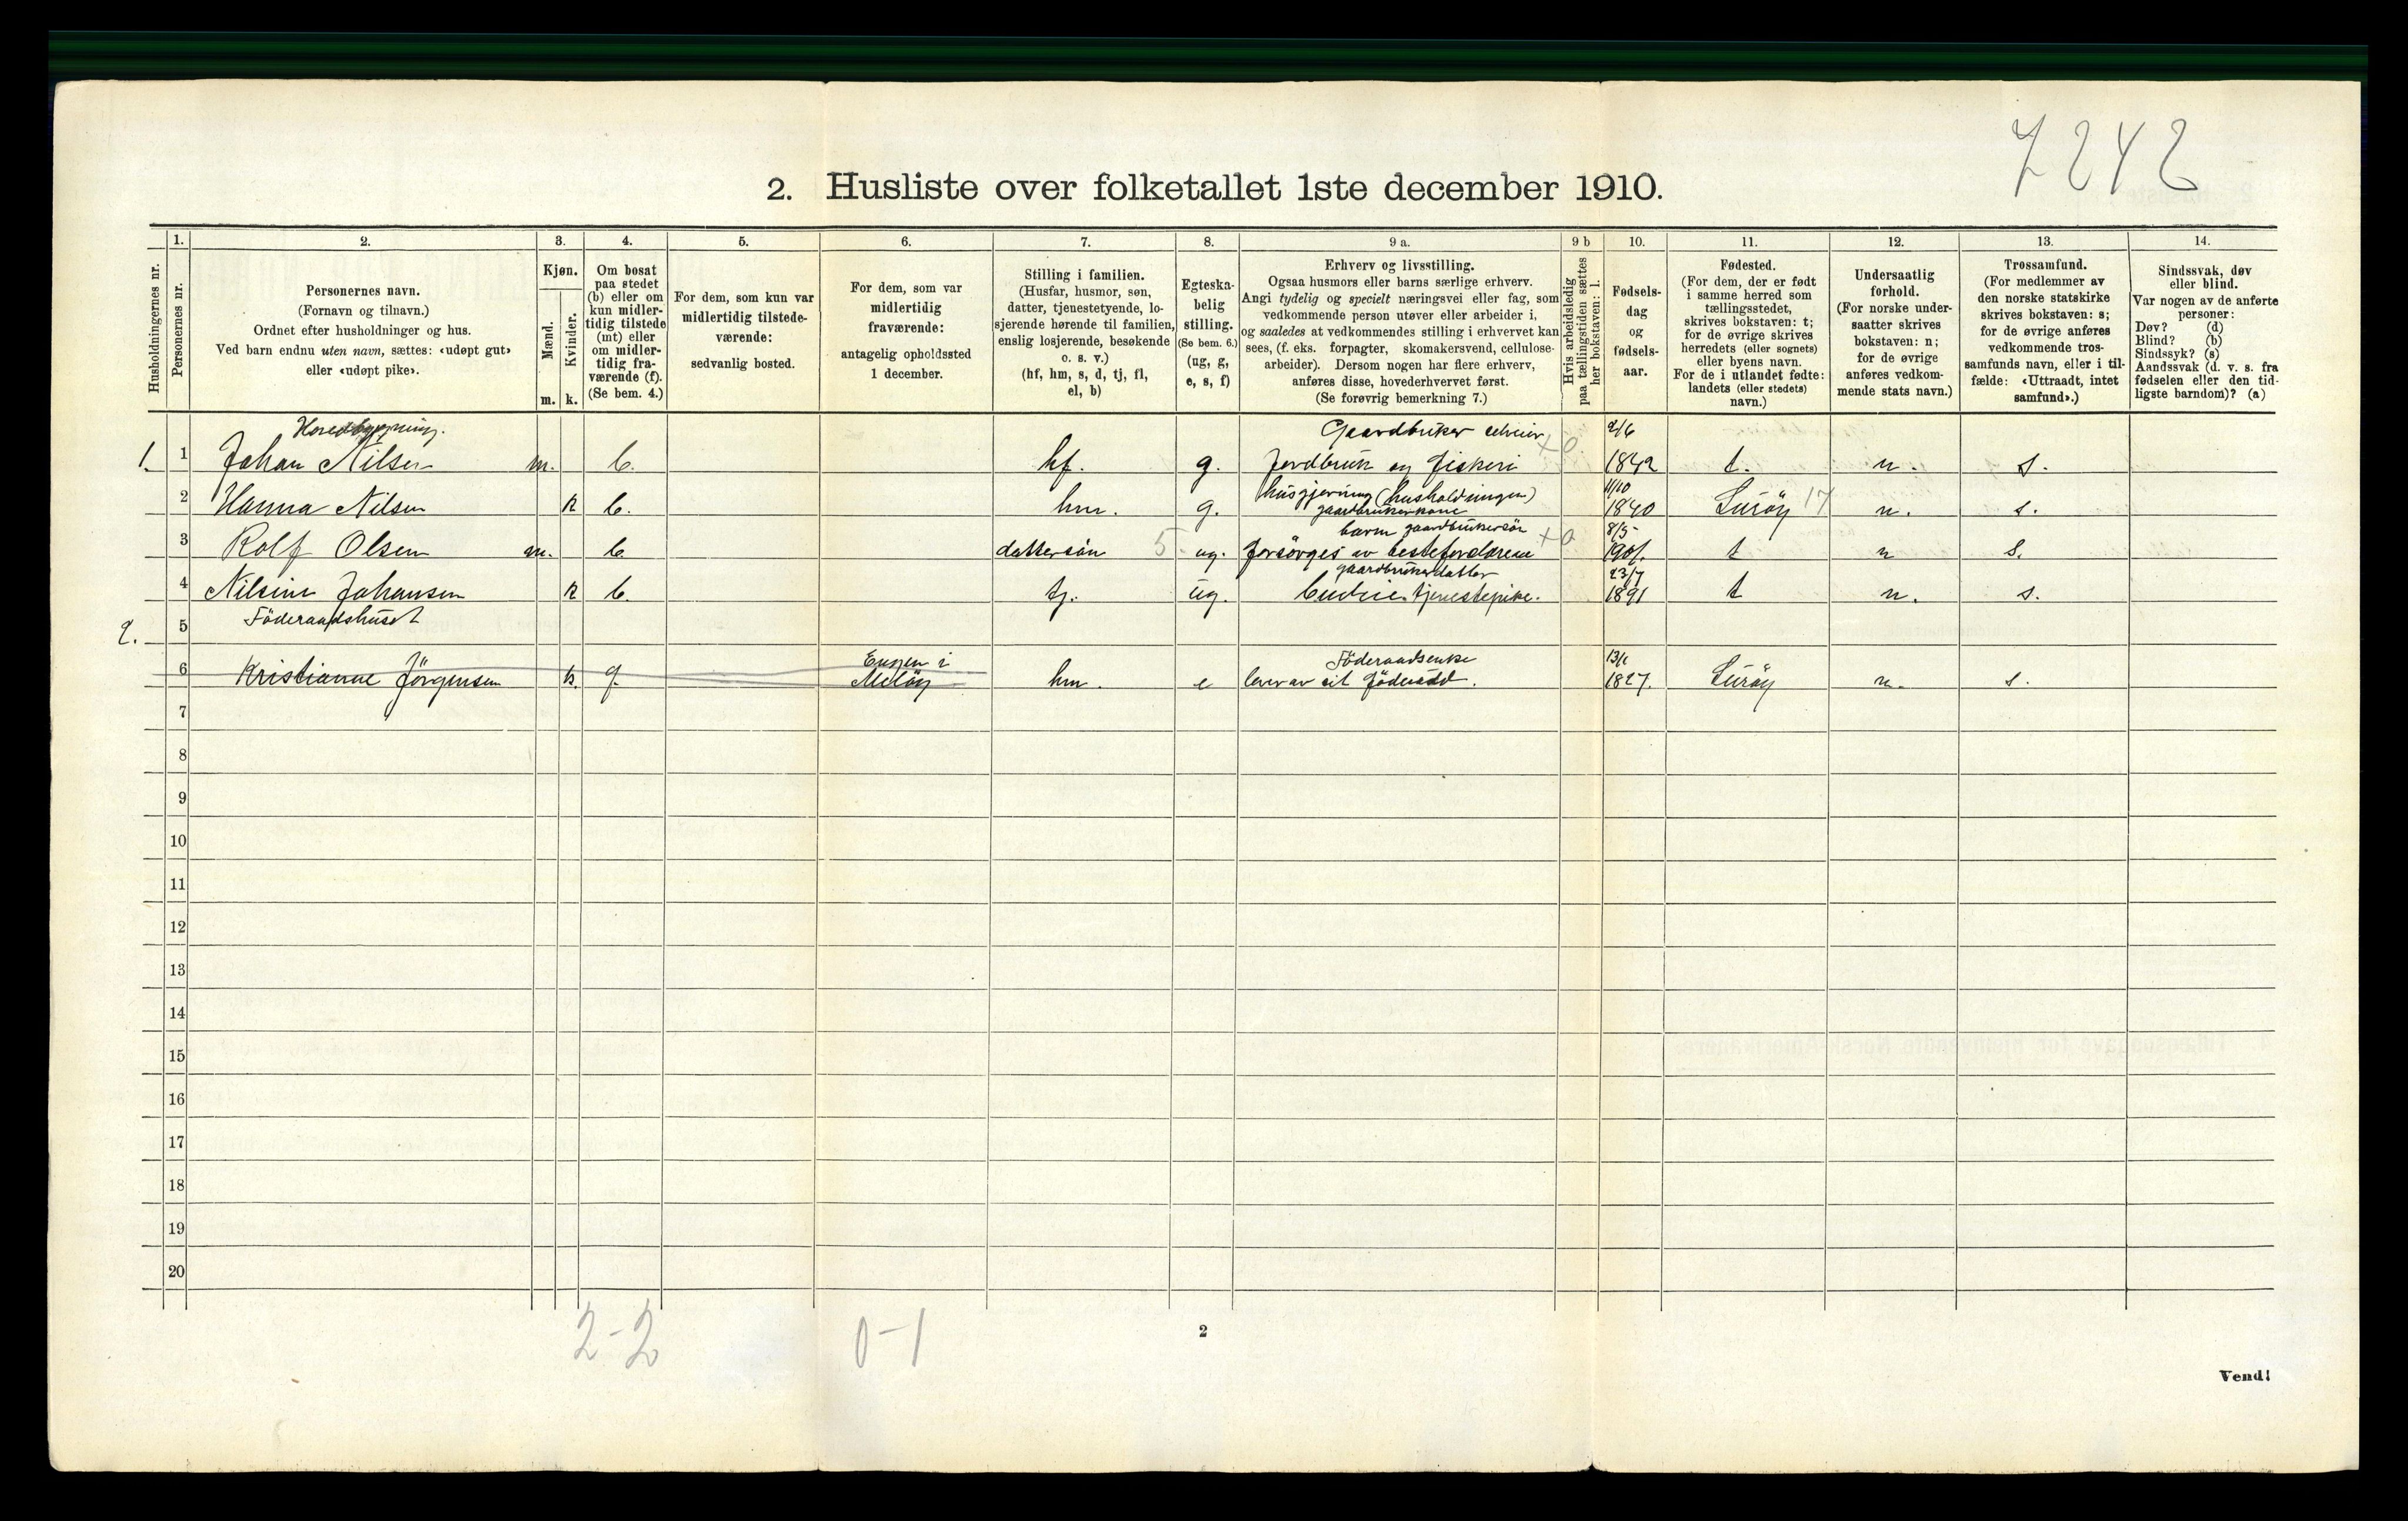 7242
2. Husliste over folketallet 1ste december 1910.
Husholdningernes nr.
1.
Personernes nr.
2.
Personernes navn.
(Fornavn og tilnavn.)
Ordnet efter husholdninger og hus.
Ved barn endnu uten navn, sættes: «udøpt gut»
eller «udøpt pike».
3.
Kjøn.
Mænd.
Kvinder.
m. k.
4.
Om bosat
paa stedet
(b) eller om
kun midler-
tidig tilstede
(mt) eller
om midler-
tidig fra-
værende (f).
(Se bem. 4.)
5.
For dem, som kun var
midlertidig tilstede-
værende:
sedvanlig bosted.
6.
For dem, som var
midlertidig
fraværende:
antagelig opholdssted
1 december.
7.
Stilling i familien.
(Husfar, husmor, søn,
datter, tjenestetyende, lo-
sjerende hørende til familien,
enslig losjerende, besøkende
o. s. v.)
(hf, hm, s, d, tj, fl,
el, b)
8.
Egteska-
belig
stilling.
(Se bem. 6.)
(ug, g,
e, s, f)
9 a.
Erhverv og livsstilling.
Ogsaa husmors eller barns særlige erhverv.
Angi tydelig og specielt næringsvei eller fag, som
vedkommende person utøver eller arbeider i,
og saaledes at vedkommendes stilling i erhvervet kan
sees, (f. eks. forpagter, skomakersvend, cellulose-
arbeider). Dersom nogen har flere erhverv,
anføres disse, hovederhvervet først.
(Se forøvrig bemerkning 7.)
9 b
Hvis arbeidsledig
paa tællingstiden sættes
her bokstaven: l.
10.
Fødsels-
dag
og
fødsels-
aar.
11.
Fødested.
(For dem, der er født
i samme herred som
tællingsstedet,
skrives bokstaven: t;
for de øvrige skrives
herredets (eller sognets)
eller byens navn.
For de i utlandet fødte:
landets (eller stedets)
navn.)
12.
Undersaatlig
forhold.
(For norske under-
saatter skrives
bokstaven: n;
for de øvrige
anføres vedkom-
mende stats navn.)
13.
Trossamfund.
(For medlemmer av
den norske statskirke
skrives bokstaven: s;
for de øvrige anføres
vedkommende tros-
samfunds navn, eller i til-
fælde: «Uttraadt, intet
samfund».)
14.
Sindssvak, døv
eller blind.
Var nogen av de anførte
personer:
Døv? (d)
Blind? (b)
Sindssyk? (s)
Aandssvak (d. v. s. fra
fødselen eller den tid-
ligste barndom)? (a)
Hovedbygning. Gaardbruker selveier 2/6
1. 1 Johan Nilsen m. b. hf. g. Jordbruk og fiskeri +0 1842 t. n. s.
husgjerning (husholdningen) 11/10
2 Hanna Nilsen k b. hm. g. gaardbrukerkone 1840 Luröy 17 n. s.
barn gaardbrukersön 8/5
3 Rolf Olsen m. b. dattersön 5 ug. forsörges av besteforeldrene +0 1901. t n s.
gaardbrukerdatter 23/7
4 Nilsine Johansen k b. tj. ug. budeie tjenestepike. 1891 t n. s.
2. 5 Föderaadshuset
Engen i Föderaadsenke 13/1
6 Kristianne Jörgensen k. f. Melöy hm. e lever av sit föderåd. 1827. Luröy n. s.
7
8
9
10
11
12
13
14
15
16
17
18
19
20
2-2 0-1
2
Vend!